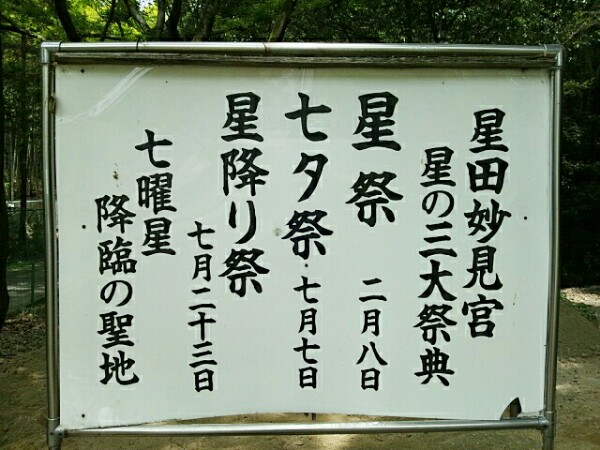 星田妙見宮
星の三大祭典
星祭 二月八日
七夕祭 七月七日
星降り祭
七月二十三日
七曜星
降臨の聖地